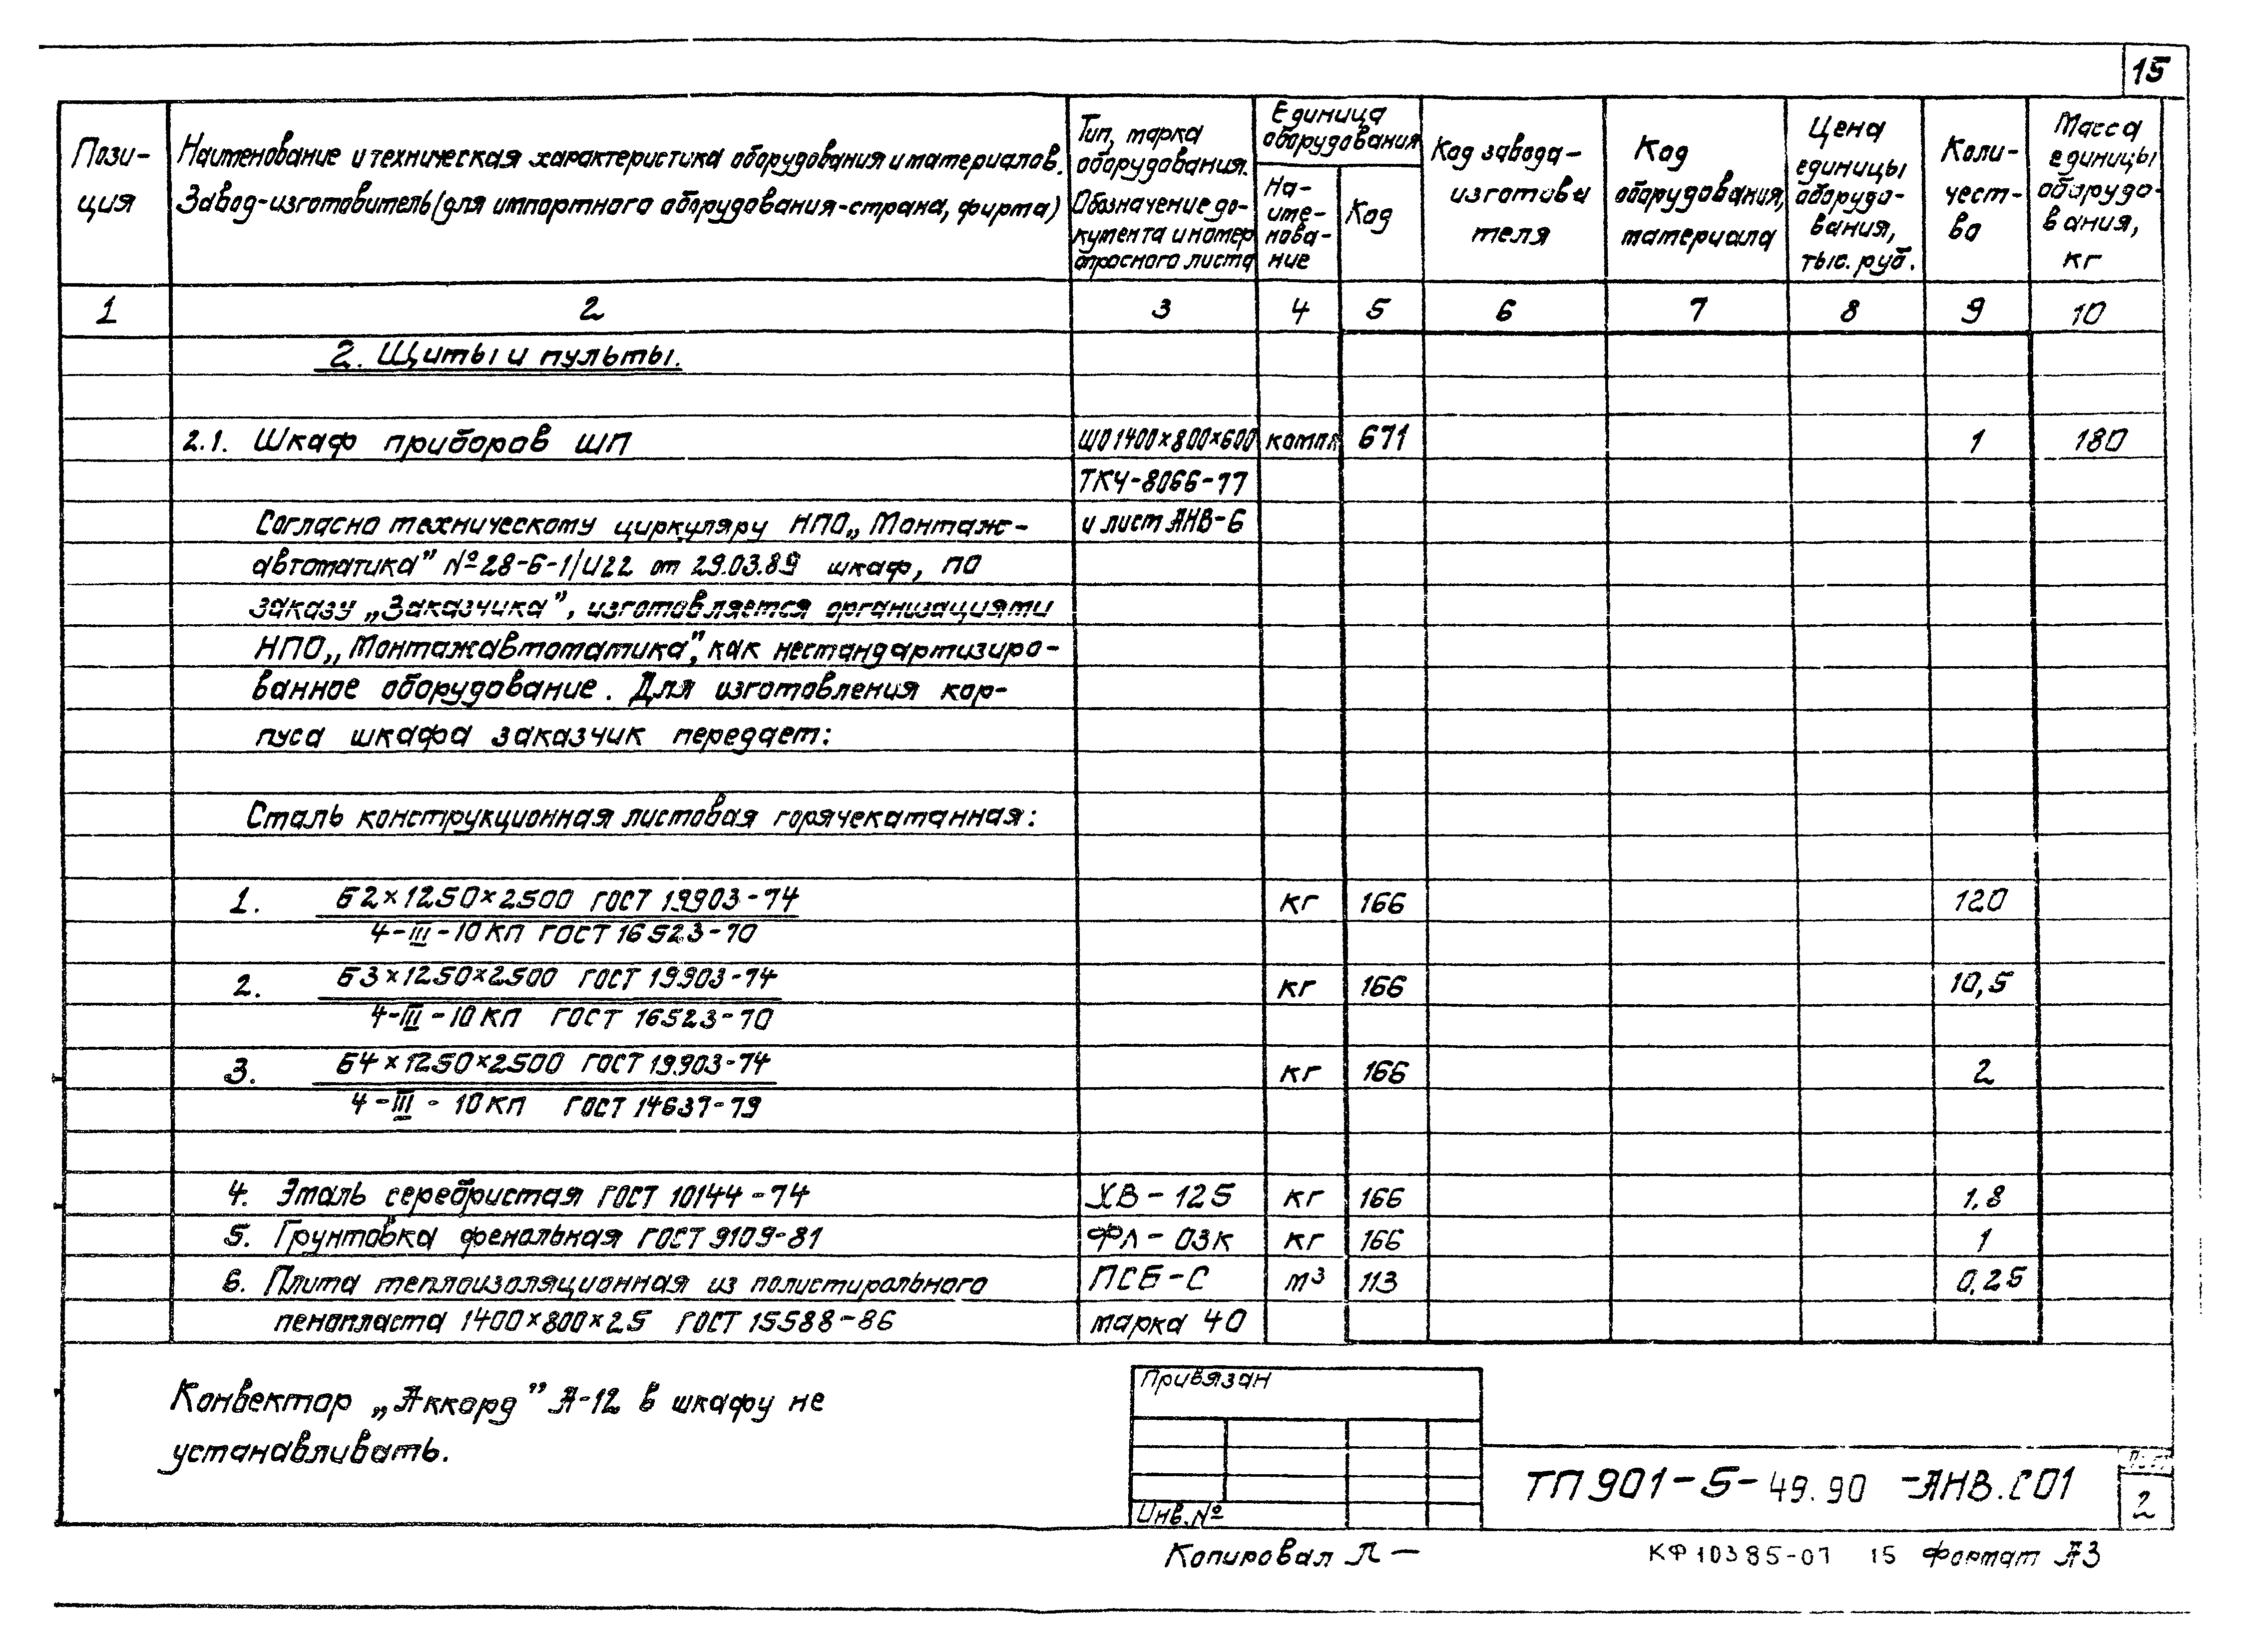 15
Пози-
ция
Наименование и техническая характеристика оборудования и материалов.
Завод-изготовитель (для импортного оборудования-страна, фирма)
Тип, марка
оборудования.
Обозначение до-
кумента и номер
опросного листа
Единица
оборудования
На-
име-
нова-
ние
Код
Код завода-
изготови
теля
Код
оборудования,
материала
Цена
единицы
оборудо-
вания,
тыс. руб.
Коли-
чест-
во
Масса
единицы
оборудо-
вания,
кг
1 2 3 4 5 6 7 8 9 10
2. Щиты и пульты.
2.1. Шкаф приборов ШП ШО 1400×800×600 компл 671 1 180
ТКЧ-8066-77
Согласно техническому циркуляру НПО „Монтаж- и лист АНВ-6
автоматика" №28-6-1/И22 от 29.03.89 шкаф, по
заказу „Заказчика", изготовляется организациями
НПО „Монтажавтоматика", как нестандартизиро-
ванное оборудование. Для изготовления кор-
пуса шкафа заказчик передает:
Сталь конструкционная листовая горячекатанная:
1. Б2×1250×2500 ГОСТ 19903-74 кг 166 120
4-III-10КП ГОСТ 16523-70
2. Б3×1250×2500 ГОСТ 19903-74 кг 166 10,5
4-III-10КП ГОСТ 16523-70
3. Б4×1250×2500 ГОСТ 19903-74 кг 166 2
4-III-10КП ГОСТ 14637-79
4. Эмаль серебристая ГОСТ 10144-74 ХВ-125 кг 166 1,8
5. Грунтовка фенальная ГОСТ 9109-81 ФЛ-03К кг 166 1
6. Плита теплоизоляционная из полистирального ПСБ-С м³ 113 0,25
пенопласта 1400×800×25 ГОСТ 15588-86 марка 40
Конвектор „Аккорд" А-12 в шкафу не
устанавливать.
Привязан
Инв. №
ТП 901-5-49.90 -АНВ.СО1
Лист
2
Копировал Л-
КФ 10385-07 15 Формат А3